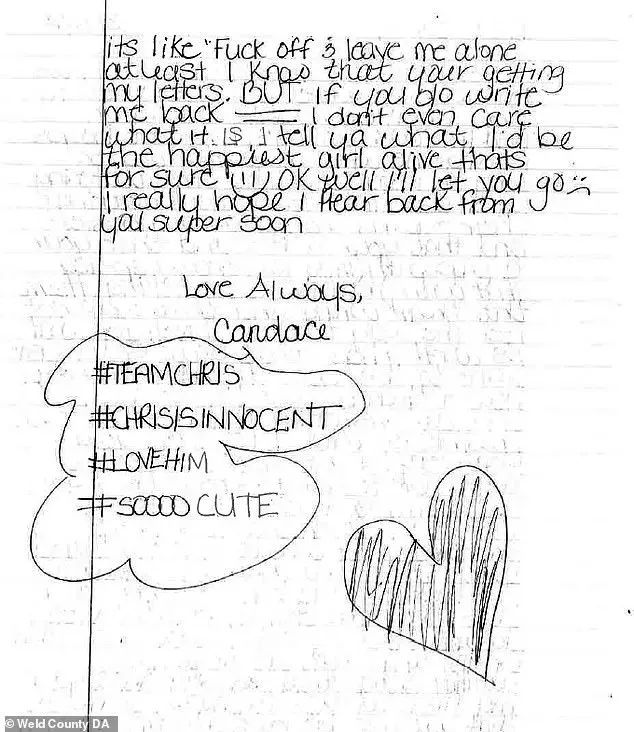 its like "Fuck off & leave me alone
atleast I know that your getting
my letters. BUT if you do write
me back —— I don't even care
what it is, I tell ya what, I'd be
the happiest girl alive thats
for sure (!!!) OK well I'll let you go :(
I really hope I hear back from
ya! super soon
Love Always,
Candace
#TEAMCHRIS
#CHRISISINNOCENT
#LOVEHIM
#SOOOO CUTE
© Weld County DA